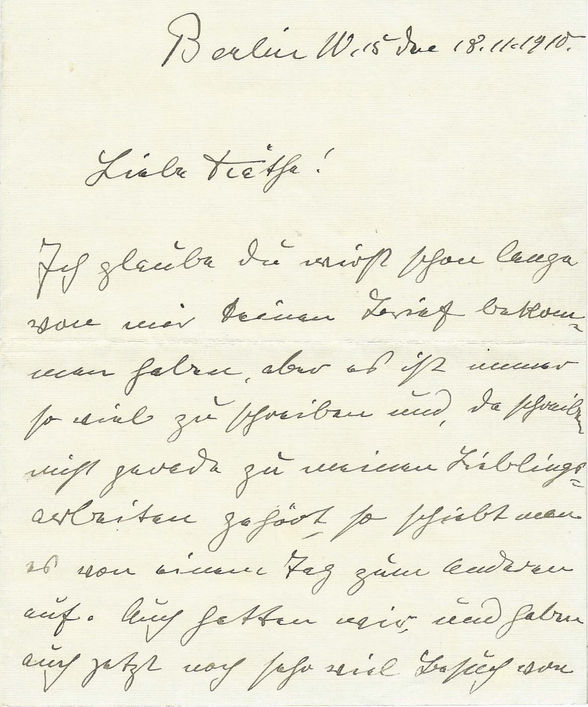 Berlin W. 15 den 18.11.1910.
Liebe Käthe!
Ich glaube du wirst schon lange
von mir keinen Brief bekom=
men haben, aber es ist immer
so viel zu schreiben und, da schreiben
nicht gerade zu meinen Lieblings=
arbeiten gehört, so schiebt man
es von einem Tag zum anderen
auf. Auch hatten wir, und haben
auch jetzt noch sehr viel Besuch von